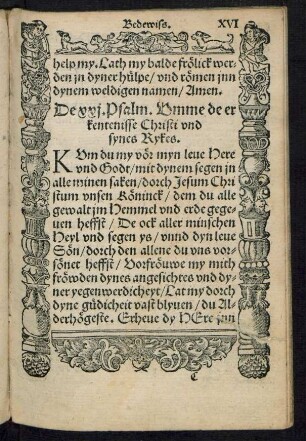 Bedewiſs. XVI
help my. Lath my balde frölick wer-
den jn dyner hülpe/ vnd römen jnn
dynem weldigen namen/ Amen.
De xxj. Pſalm. Vmme de er
kentenisſe Chriſti vnd
ſynes Rykes.
KVm du my vör myn leue Here
vnd Godt/ mit dynem ſegen jn
alle minen ſaken/ dorch Jeſum Chri
ſtum vnſen Köninck/ dem du alle
gewalt jm Hemmel vnd erde gege-
uen heffſt/ De ock aller minſchen
Heyl vnd ſegen ys/ vnnd dyn leue
Sön/ dorch den allene du vns vor-
ſöner heffſt/ Vorfröuwe my mith
fröwden dynes angeſichtes vnd dy-
ner yegenwerdicheyt/ Lat my dorch
dyne güdicheit vaſt blyuen/ du Al-
derhögeſte. Erheue dy HEre jnn
C